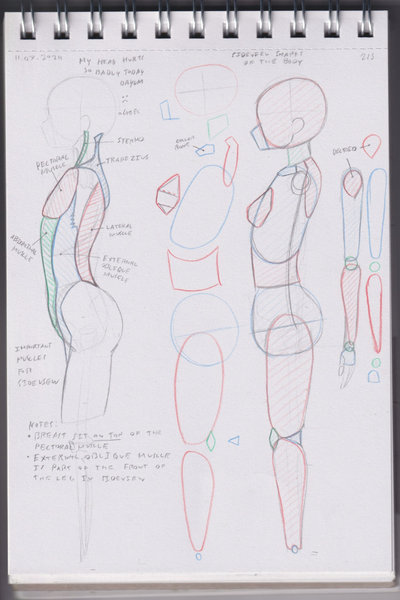 MY HEAD HURTS
SO BADLY TODAY
SIDEVIEW SHAPES
OF THE BODY
213
STERNO
TRAPEZIUS
PECTORAL
MUSCLE
LATERAL
MUSCLE
ABDOMINAL
MUSCLE
EXTERNAL
OBLIQUE
MUSCLE
DELTOID
IMPORTANT
MUSCLES
FOR
SIDEVIEW
NOTES:
• BREAST SIT ON TOP OF THE
PECTORAL MUSCLE
• EXTERNAL OBLIQUE MUSCLE
IS PART OF THE FRONT OF
THE LEG IN SIDEVIEW